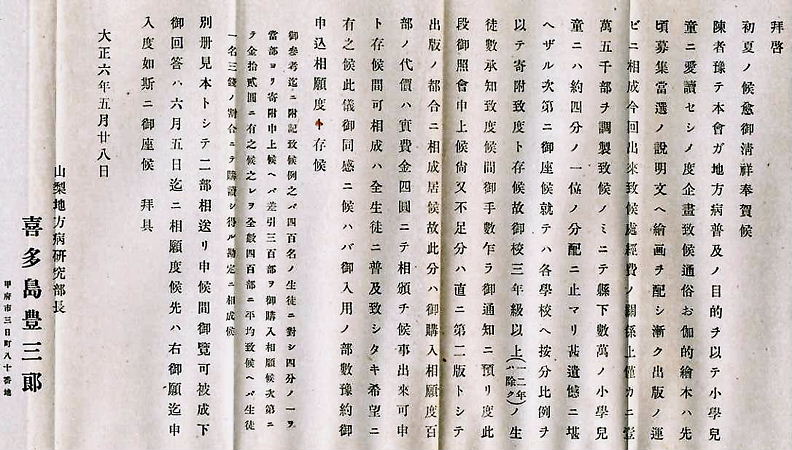 拜啓
初夏ノ候愈御清祥奉賀候
陳者豫テ本會ガ地方病普及ノ目的ヲ以テ小學兒
童ニ愛讀セシメ度企畫致候通俗お伽的繪本ハ先
頃募集當選ノ説明文ヘ繪画ヲ配シ漸ク出版ノ運
ビニ相成今回出來致候處經費ノ關係上僅カニ壹
萬五千部ヲ調製致候ノミニテ縣下數萬ノ小學兒
童ニハ約四分ノ一位ノ分配ニ止マリ甚遺憾ニ堪
ヘザル次第ニ御座候就テハ各學校ヘ按分比例ヲ
以テ寄附致度ト存候故御校三年級以上(一二年ハ除ク)ノ生
徒數承知致度候間御手數乍ラ御通知ニ預リ度此
段御照會申上候尙又不足分ハ直ニ第二版トシテ
出版ノ都合ニ相成居候故此分ハ御購入相願度百
部ノ代價ハ實費金四圓ニテ相頒チ候事出來可申
ト存候間可相成ハ全生徒ニ普及致シタキ希望ニ
有之候此儀御同感ニ候ハバ御入用ノ部數豫約御
申込相願度ク存候
御參考迄ニ附記致候例之バ四百名ノ生徒ニ對シ四分ノ一ヲ
當部ヨリ寄附申上候ヘバ差引三百部ヲ御購入相願候次第ニ
テ金拾貳圓ニ有之候之レヲ全數四百部ニ平均致候ヘバ生徒
一名三錢ノ割合ニテ購讀シ得ル勘定ニ相成候
別册見本トシテ二部相送リ申候間御覽可被成下
御回答ハ六月五日迄ニ相願度候先ハ右御願迄申
入度如斯ニ御座候 拜具
大正六年五月廿八日
山梨地方病研究部長
喜多島豊三郎
甲府市三日町八十番地